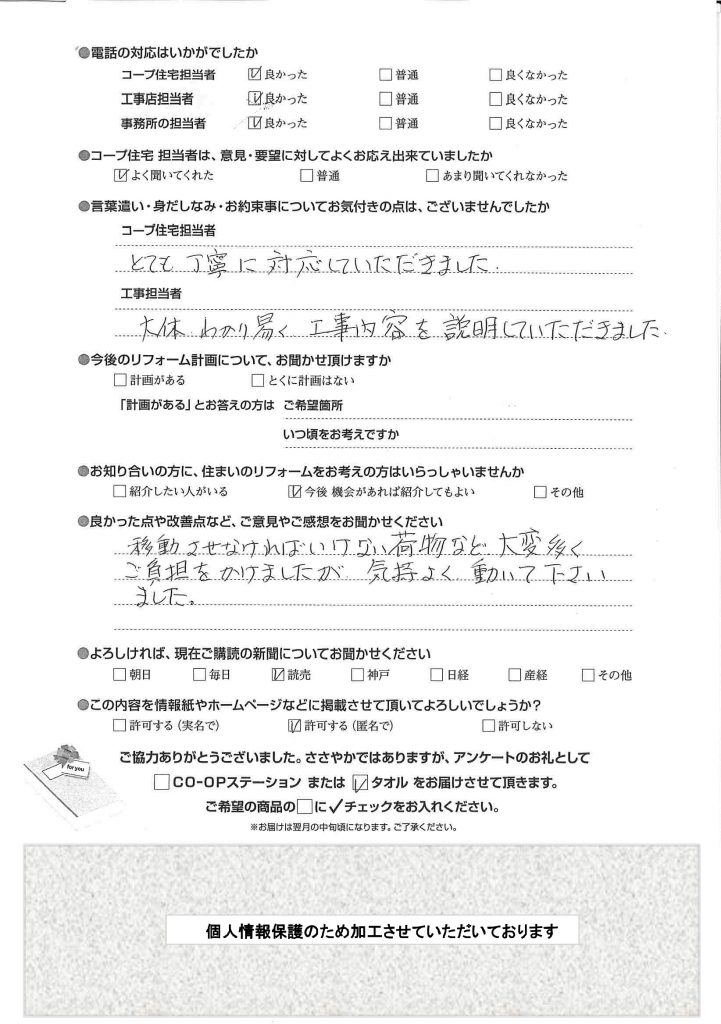 ●電話の対応はいかがでしたか
コープ住宅担当者 ☑良かった □普通 □良くなかった
工事店担当者 ☑良かった □普通 □良くなかった
事務所の担当者 ☑良かった □普通 □良くなかった
●コープ住宅 担当者は、意見・要望に対してよくお応え出来ていましたか
☑よく聞いてくれた □普通 □あまり聞いてくれなかった
●言葉遣い・身だしなみ・お約束事についてお気付きの点は、ございませんでしたか
コープ住宅担当者
とても 丁寧に 対応していただきました.
工事担当者
大体 わかり易く 工事内容を 説明していただきました.
●今後のリフォーム計画について、お聞かせ頂けますか
□計画がある □とくに計画はない
「計画がある」とお答えの方は ご希望箇所
いつ頃をお考えですか
●お知り合いの方に、住まいのリフォームをお考えの方はいらっしゃいませんか
□紹介したい人がいる ☑今後 機会があれば紹介してもよい □その他
●良かった点や改善点など、ご意見やご感想をお聞かせください
移動させなければいけない荷物など 大変多く
ご負担をかけましたが 気持よく 動いて下さい
ました。
●よろしければ、現在ご購読の新聞についてお聞かせください
□朝日 □毎日 ☑読売 □神戸 □日経 □産経 □その他
●この内容を情報紙やホームページなどに掲載させて頂いてよろしいでしょうか?
□許可する(実名で) ☑許可する(匿名で) □許可しない
for you
ご協力ありがとうございました。ささやかではありますが、アンケートのお礼として
□CO-OPステーション または ☑タオル をお届けさせて頂きます。
ご希望の商品の□に✓チェックをお入れください。
※お届けは翌月の中旬頃になります。ご了承ください。
個人情報保護のため加工させていただいております